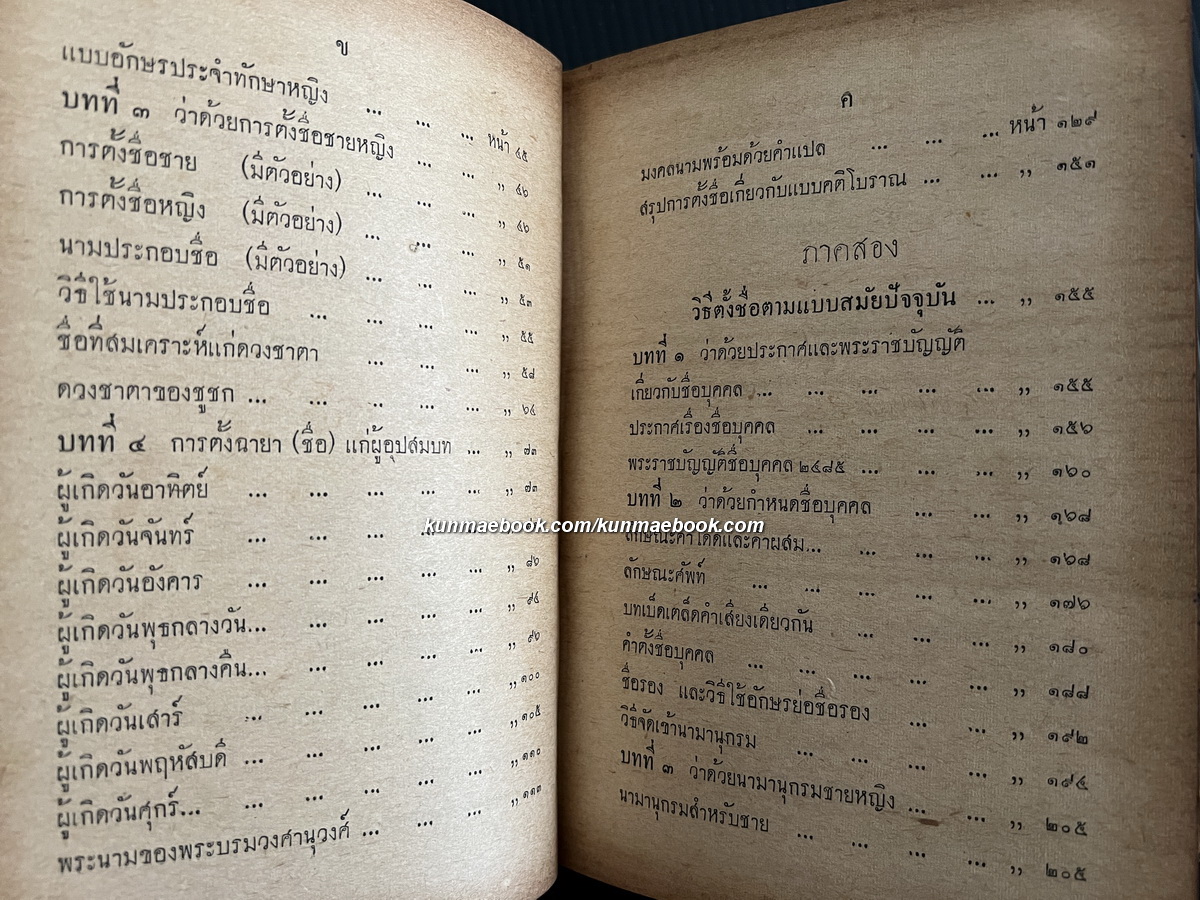 ข
แบบอักษรประจำทักษาหญิง ... ... ... หน้า ๔๕
บทที่ ๓ ว่าด้วยการตั้งชื่อชายหญิง ... ... ,, ๔๖
การตั้งชื่อชาย (มีตัวอย่าง) ... ... ... ,, ๔๖
การตั้งชื่อหญิง (มีตัวอย่าง) ... ... ... ,, ๕๑
นามประกอบชื่อ (มีตัวอย่าง) ... ... ... ,, ๕๓
วิธีใช้นามประกอบชื่อ ... ... ... ... ,, ๕๕
ชื่อที่สมเคราะห์แก่ดวงชาตา ... ... ... ,, ๕๘
ดวงชาตาของชูชก ... ... .. ... ... ,, ๖๔
บทที่ ๔ การตั้งฉายา (ชื่อ) แก่ผู้อุปสมบท ... ,, ๗๓
ผู้เกิดวันอาทิตย์ ... ... ... ... ... ,, ๗๓
ผู้เกิดวันจันทร์ ... ... ... ...
ผู้เกิดวันอังคาร ... ... ... ... ... ,, ๘๖
ผู้เกิดวันพุธกลางวัน... ... ... ... ... ,, ๙๔
ผู้เกิดวันพุธกลางคืน... ... ... ... ... ,, ๙๖
ผู้เกิดวันเสาร์ ... ... ... ... ... ,, ๑๐๐
ผู้เกิดวันพฤหัสบดี ... ... ... ... ... ,, ๑๐๕
ผู้เกิดวันศุกร์... ... ... ... ... ,, ๑๑๐
พระนามของพระบรมวงศานุวงศ์ ... ... ... ,, ๑๑๓
ค
มงคลนามพร้อมด้วยคำแปล ... ... ... หน้า ๑๒๙
สรุปการตั้งชื่อเกี่ยวกับแบบคติโบราณ ... ... ,, ๑๕๑
ภาคสอง
วิธีตั้งชื่อตามแบบสมัยปัจจุบัน ... ,, ๑๕๕
บทที่ ๑ ว่าด้วยประกาศและพระราชบัญญัติ
เกี่ยวกับชื่อบุคคล ... ... ... ... ... ,, ๑๕๕
ประกาศเรื่องชื่อบุคคล ... ... ... ... ,, ๑๕๖
พระราชบัญญัติชื่อบุคคล ๒๔๘๕ ... ... ... ,, ๑๖๐
บทที่ ๒ ว่าด้วยกำหนดชื่อบุคคล ... ... ,, ๑๖๘
ลักษณะคำโดดและคำผสม... ... ... ... ,, ๑๖๘
ลักษณะศัพท์ ... ... ... ... ... ,, ๑๗๖
บทเบ็ดเตล็ดคำเสียงเดียวกัน ... ... ... ,, ๑๘๐
คำตั้งชื่อบุคคล ... ... ... ... ... ,, ๑๘๘
ชื่อรอง และวิธีใช้อักษรย่อชื่อรอง ... ... ,, ๑๙๒
วิธีจัดเข้านามานุกรม ... ... ... ... ,, ๑๙๔
บทที่ ๓ ว่าด้วยนามานุกรมชายหญิง ... ... ,, ๒๐๕
นามานุกรมสำหรับชาย ... ... ... ... ,, ๒๐๕
kunmaebook.com/kunmaebook.com